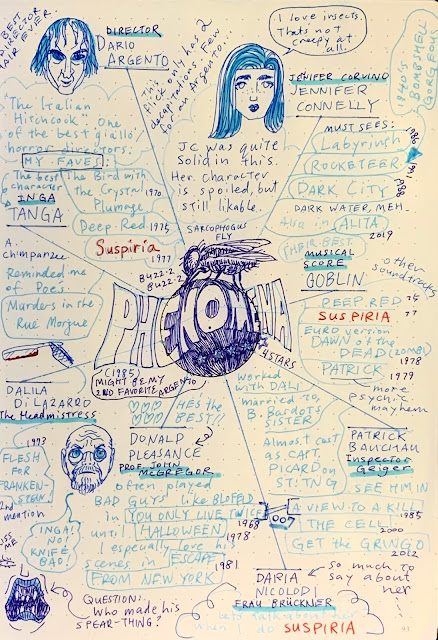 BEST
DIRECTOR
HAIR EVER.
DIRECTOR
DARIO
ARGENTO
"The Italian
Hitchcock". One
of the best giallo/
horror directors.
MY FAVES:
The Bird with
the Crystal
Plumage 1970
Deep Red 1975
Suspiria
1977
This
flick only has 2
decapitations. Few
for an Argento...
I love insects.
Thats not
creepy at
all.
JENIFER CORVINO
JENNIFER
CONNELLY
1940's
BOMBSHELL
GORGEOUS
JC was quite
solid in this.
Her character
is spoiled, but
still likable.
MUST SEES:
Labyrinth 1986
ROCKETEER 1991
DARK CITY 1998
DARK WATER, MEH.
Also in ALITA
2019
The best
character
INGA
TANGA
A
chimpanzee
Reminded me
of Poe's
Murders in the
Rue Morgue
SARCOPHOGUS
FLY
BUZZ-Z
BUZZ-Z
PHENOMENA
4 STARS
(1985)
MIGHT BE MY
2ND FAVORITE ARGENTO
THEIR BEST
MUSICAL
SCORE
GOBLIN
other
soundtracks
DEEP RED 75
SUSPIRIA 77
EURO version
DAWN of the
DEAD (ZOMBI)
1978
PATRICK
1979
more
psychic
mayhem
DALILA
DI LAZARRO
The Headmistress
1973
FLESH
FOR
FRANKEN-
STEIN
2nd
mention
HES the
BEST!!
DONALD
PLEASANCE
PROF. JOHN
McGREGOR
often played
BAD GUYS like BLOFELD
in YOU ONLY LIVE TWICE
1968
until HALLOWEEN
1978
I especially love his
scenes in ESCAPE
FROM NEW YORK 1981
INGA!
NO!
KNIFE
BAD!
ME
QUESTION:
Who made his
SPEAR-THING?
worked
with DALI
married to
B. Bardots
SISTER
Almost cast
as CAPT.
PICARD on
ST:TNG
PATRICK
BAUCHAU
Inspector
Geiger
SEE HIM IN
007
A VIEW TO A KILL
1985
THE CELL
2000
GET THE GRINGO
2012
DARIA
NICOLODI
FRAU BRÜCKNER
so much to
say about
her
Lets talk about her
when I do SUSPIRIA